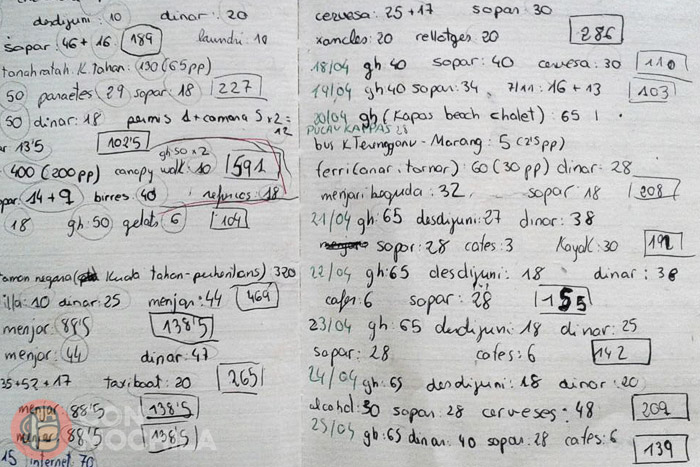 desdijuni: 10 dinar: 20
sopar 46 + 16 189 laundri: 10
tanahratah. K. tahan: 130 (65pp)
50 29 sopar 18 227
50 dinar: 18 permis 1 + camara 5 x2 =
12
ar 13'5 102'5 gh: 50 x 2
400 (200 pp) canopy walk: 10 591
opar: 14 + 9 birres: 40 18
18 gh: 50 gelats 6 104
taman negara ( Kuala tahan - perhentians) 320
illa: 10 dinar: 25 menjar: 44 469
menjar: 88'5 138'5
menjar: 44 dinar: 47
35 + 52 + 17 taxiboat: 20 265
menjar: 88'5 138'5
menjar: 88'5 138'5
15 internet: 70
cervesa: 25 + 17 sopar: 30
xancles: 20 rellotges 20 286
18/04 gh: 40 sopar: 40 cervesa: 30 110
19/04 gh 40 sopar: 34. 7/11: 16 + 13 103
20/04 gh (Kapas beach chalet): 65
PULAU KAPPAS 28
bus K Terengganu - Marang: 5 (2'5 pp)
ferri (anar i tornar): 60 (30 pp) dinar: 28
menjar beguda: 32, sopar: 18 208
21/04 gh: 65 desdijuni: 27 dinar: 38
sopar: 28 cafes: 3 Kayak: 30 191
22/04 gh: 65 desdijuni: 18 dinar: 38
cafes: 6 sopar: 28 155
23/04 gh: 65 desdijuni: 18 dinar: 25
sopar: 28 cafes: 6 142
24/04 gh: 65 desdijuni: 18 dinar: 20
alcohol: 30 sopar: 28 cerveses: 48 209
25/04 gh: 65 dinar: 40 sopar: 28 cafes: 6
139